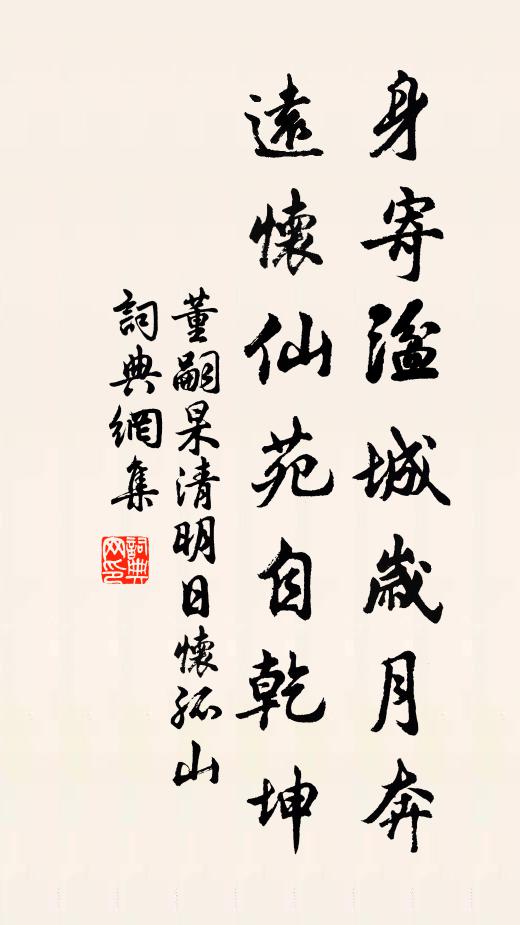 身寄湓城歲月奔
遠懷仙苑自乾坤
董嗣杲清明日懷孤山
詞典網集
詞典網印